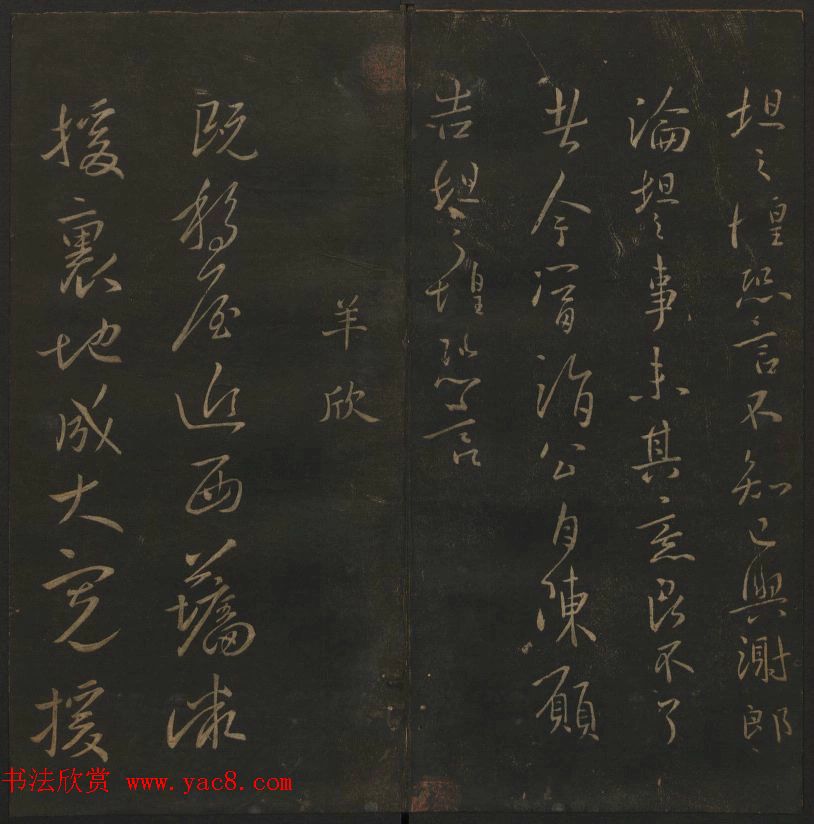 坦之惶恐言不知已與謝郎
論坦之事未其意思不了
今公自陳願
告坦之惶恐言
羊欣
既移屋近西
援裏地成大寬援
书法欣赏 www.yac8.com